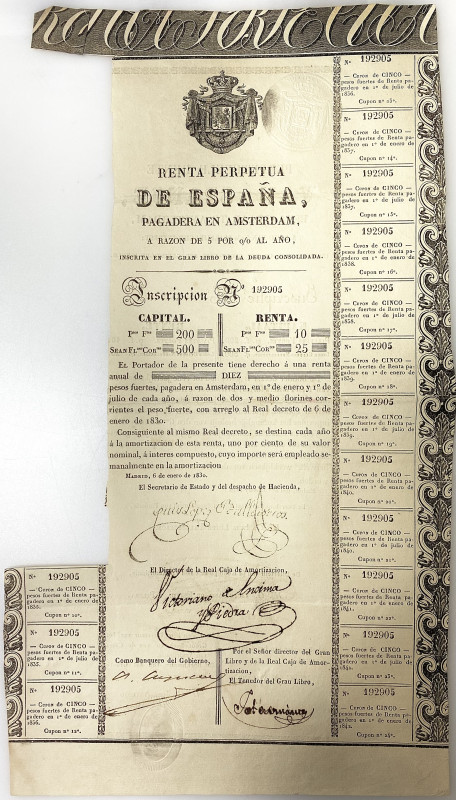 RENTA PERPETUA
DE ESPAÑA,
PAGADERA EN AMSTERDAM,
A RAZON DE 5 POR 0/0 AL AÑO,
INSCRITA EN EL GRAN LIBRO DE LA DEUDA CONSOLIDADA.
Inscripcion Nº 192905
CAPITAL. RENTA.
Psos Ftes 200 Psos Ftes 10
SEAN Flnes Cortes 500 SEAN Flnes Cortes 25
EL Portador de la presente tiene derecho á una renta
anual de DIEZ
pesos fuertes, pagadera en Amsterdam, en 1º de enero y 1º de
julio de cada año, á razon de dos y medio florines cor-
rientes el peso fuerte, con arreglo al Real decreto de 6 de
enero de 1830.
Consiguiente al mismo Real decreto, se destina cada año
á la amortizacion de esta renta, uno por ciento de su valor
nominal, á interes compuesto, cuyo importe será empleado se-
manalmente en la amortizacion
MADRID, 6 de enero de 1830.
El Secretario de Estado y del despacho de Hacienda,
El Director de la Real Caja de Amortizacion,
Victoriano de Encima
y Piedra
Como Banquero del Gobierno,
Por el Señor director del Gran
Libro y de la Real Caja de Amor-
tizacion,
El Tenedor del Gran Libro,
Nº 192905
— Coros de CINCO —
pesos fuertes de Renta pa-
gadero en 1º de enero de
1835.
Cupon nº 10º.
Nº 192905
— Coros de CINCO —
pesos fuertes de Renta pa-
gadero en 1º de julio de
1835.
Cupon nº 11º.
Nº 192905
— Coros de CINCO —
pesos fuertes de Renta pa-
gadero en 1º de enero de
1836.
Cupon nº 12º.
Nº 192905
— Coros de CINCO —
pesos fuertes de Renta pa-
gadero en 1º de julio de
1836.
Cupon nº 13º.
Nº 192905
— Coros de CINCO —
pesos fuertes de Renta pa-
gadero en 1º de enero de
1837.
Cupon nº 14º.
Nº 192905
— Coros de CINCO —
pesos fuertes de Renta pa-
gadero en 1º de julio de
1837.
Cupon nº 15º.
Nº 192905
— Coros de CINCO —
pesos fuertes de Renta pa-
gadero en 1º de enero de
1838.
Cupon nº 16º.
Nº 192905
— Coros de CINCO —
pesos fuertes de Renta pa-
gadero en 1º de julio de
1838.
Cupon nº 17º.
Nº 192905
— Coros de CINCO —
pesos fuertes de Renta pa-
gadero en 1º de enero de
1839.
Cupon nº 18º.
Nº 192905
— Coros de CINCO —
pesos fuertes de Renta pa-
gadero en 1º de julio de
1839.
Cupon nº 19º.
Nº 192905
— Coros de CINCO —
pesos fuertes de Renta pa-
gadero en 1º de enero de
1840.
Cupon nº 20º.
Nº 192905
— Coros de CINCO —
pesos fuertes de Renta pa-
gadero en 1º de julio de
1840.
Cupon nº 21º.
Nº 192905
— Coros de CINCO —
pesos fuertes de Renta pa-
gadero en 1º de enero de
1841.
Cupon nº 22º.
Nº 192905
— Coros de CINCO —
pesos fuertes de Renta pa-
gadero en 1º de julio de
1841.
Cupon nº 23º.
Nº 192905
— Coros de CINCO —
pesos fuertes de Renta pa-
gadero en 1º de enero de
1842.
Cupon nº 24º.